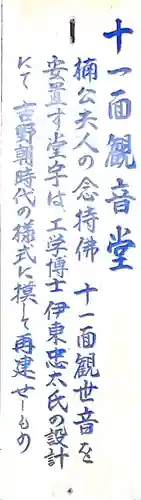 十一面観音堂
楠公夫人の念持佛 十一面観世音を
安置す堂宇は、工学博士伊東忠太氏の設計
にて 吉野朝時代の様式に模して再建せしもの